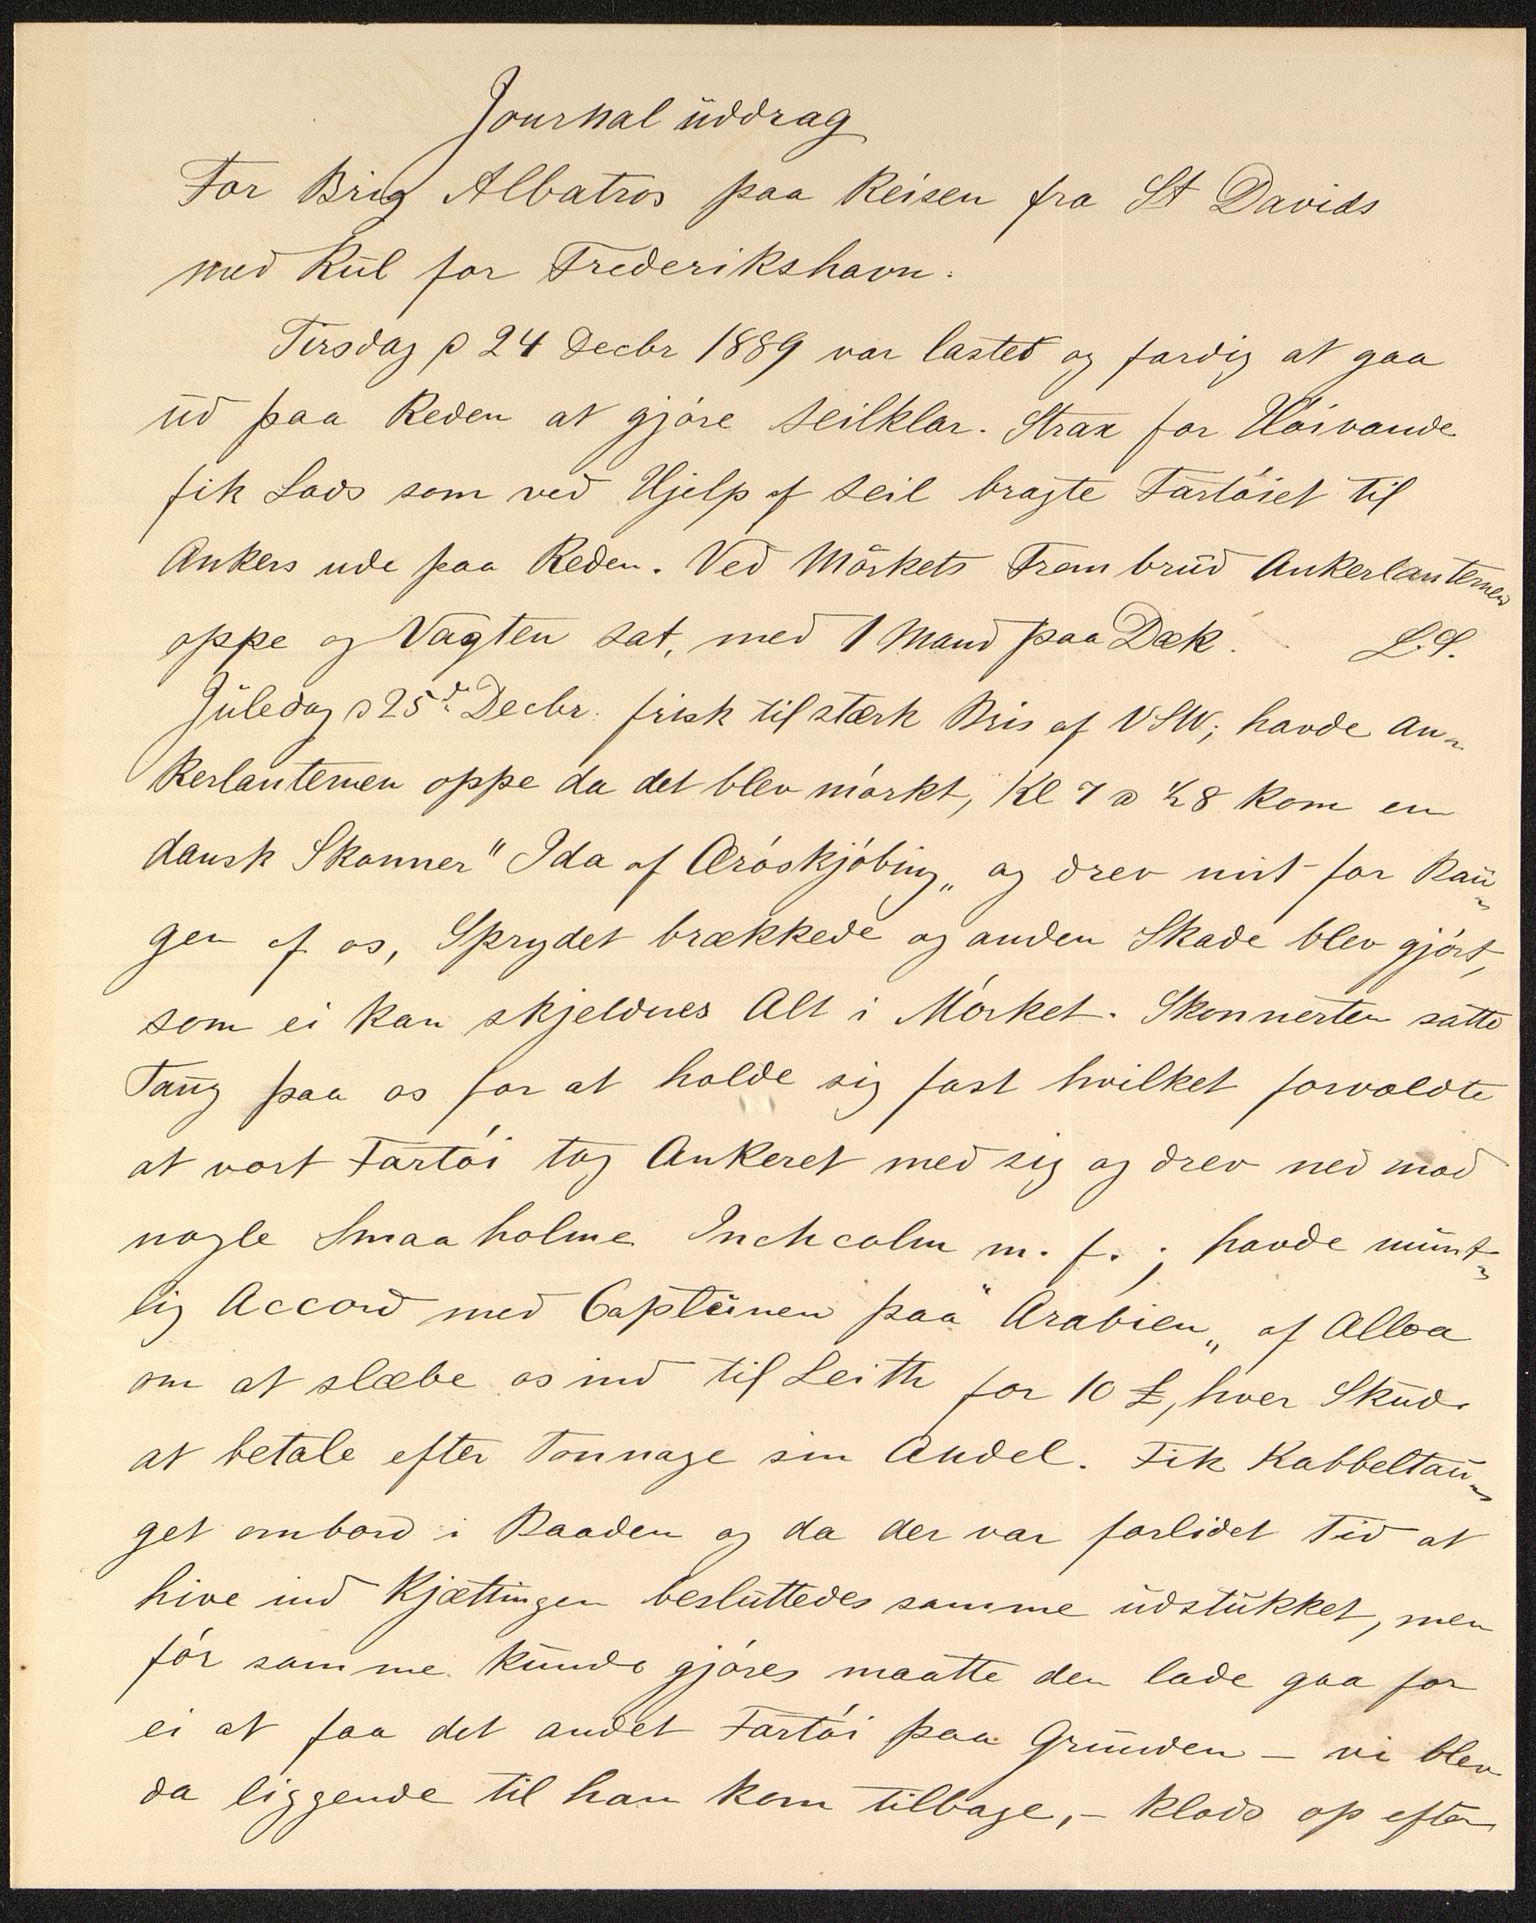 Journal uddrag
For Brig Albatros paa Reisen fra St Davids
med Kul for Frederikshavn.
Tirsdag d 24 Decbr 1889 var lastet og færdig at gaa
ud paa Reden at gjøre seilklar. Strax før Høivande
fik Lods som ved Hjelp af Seil bragte Fartøiet til
Ankers ude paa Reden. Ved Mørkets Frembrud Ankerlanternen
oppe og Vagten sat, med 1 Mand paa Dæk. L.S.
Juledag d 25de Decbr. frisk til stærk Bris af VSW; havde An-
kerlanternen oppe da det blev mørkt, Kl 7 a ½8 kom en
dansk Skonner "Ida af Ærøskjøbing„ og drev mit for Bau-
gen af os, Sprydet brækkede og anden Skade blev gjørt,
som ei kan skjeldnes Alt i Mørket. Skonnerten satte
Taug paa os for at holde sig fast hvilket forvoldte
at vort Fartøi tog Ankeret med sig og drev ned mod
nogle Smaaholme Inchcolm m. f.; havde münt-
lig Accord med Capteinen paa "Arabien„ af Alloa
om at slæbe os ind til Leith for 10 £, hver Skude
at betale efter Tonnage sin Andel. Fik Kabbeltau-
get ombord i Baaden og da der var forlidet Tid at
hive ind Kjættingen besluttedes samme udstukket, men
før samme kunde gjøres maatte den lade gaa for
ei at faa det andet Fartøi paa Grunden – vi blev
da liggende til han kom tilbage, – klods op efter